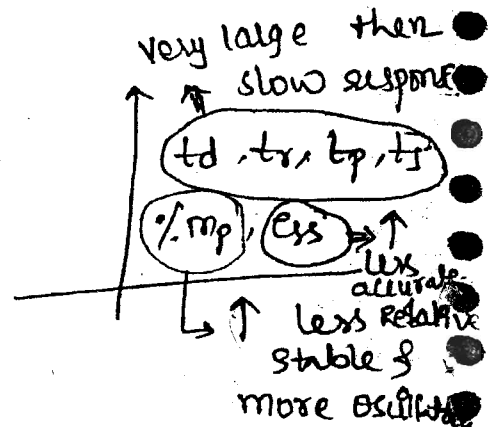 very large then
slow respon
td, tr, tp, ts
% mp, ess ⇒ ↑
less
accurate
↑ less Relative
stable &
more